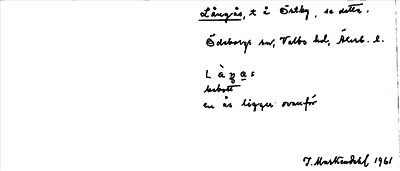 Långås, t å Östby, se detta.
Ödeborgs sn, Valbo hd, Älvsb. l.
L à ŋ a s
bebott
en ås ligger ovanför
J. Markendahl 1961